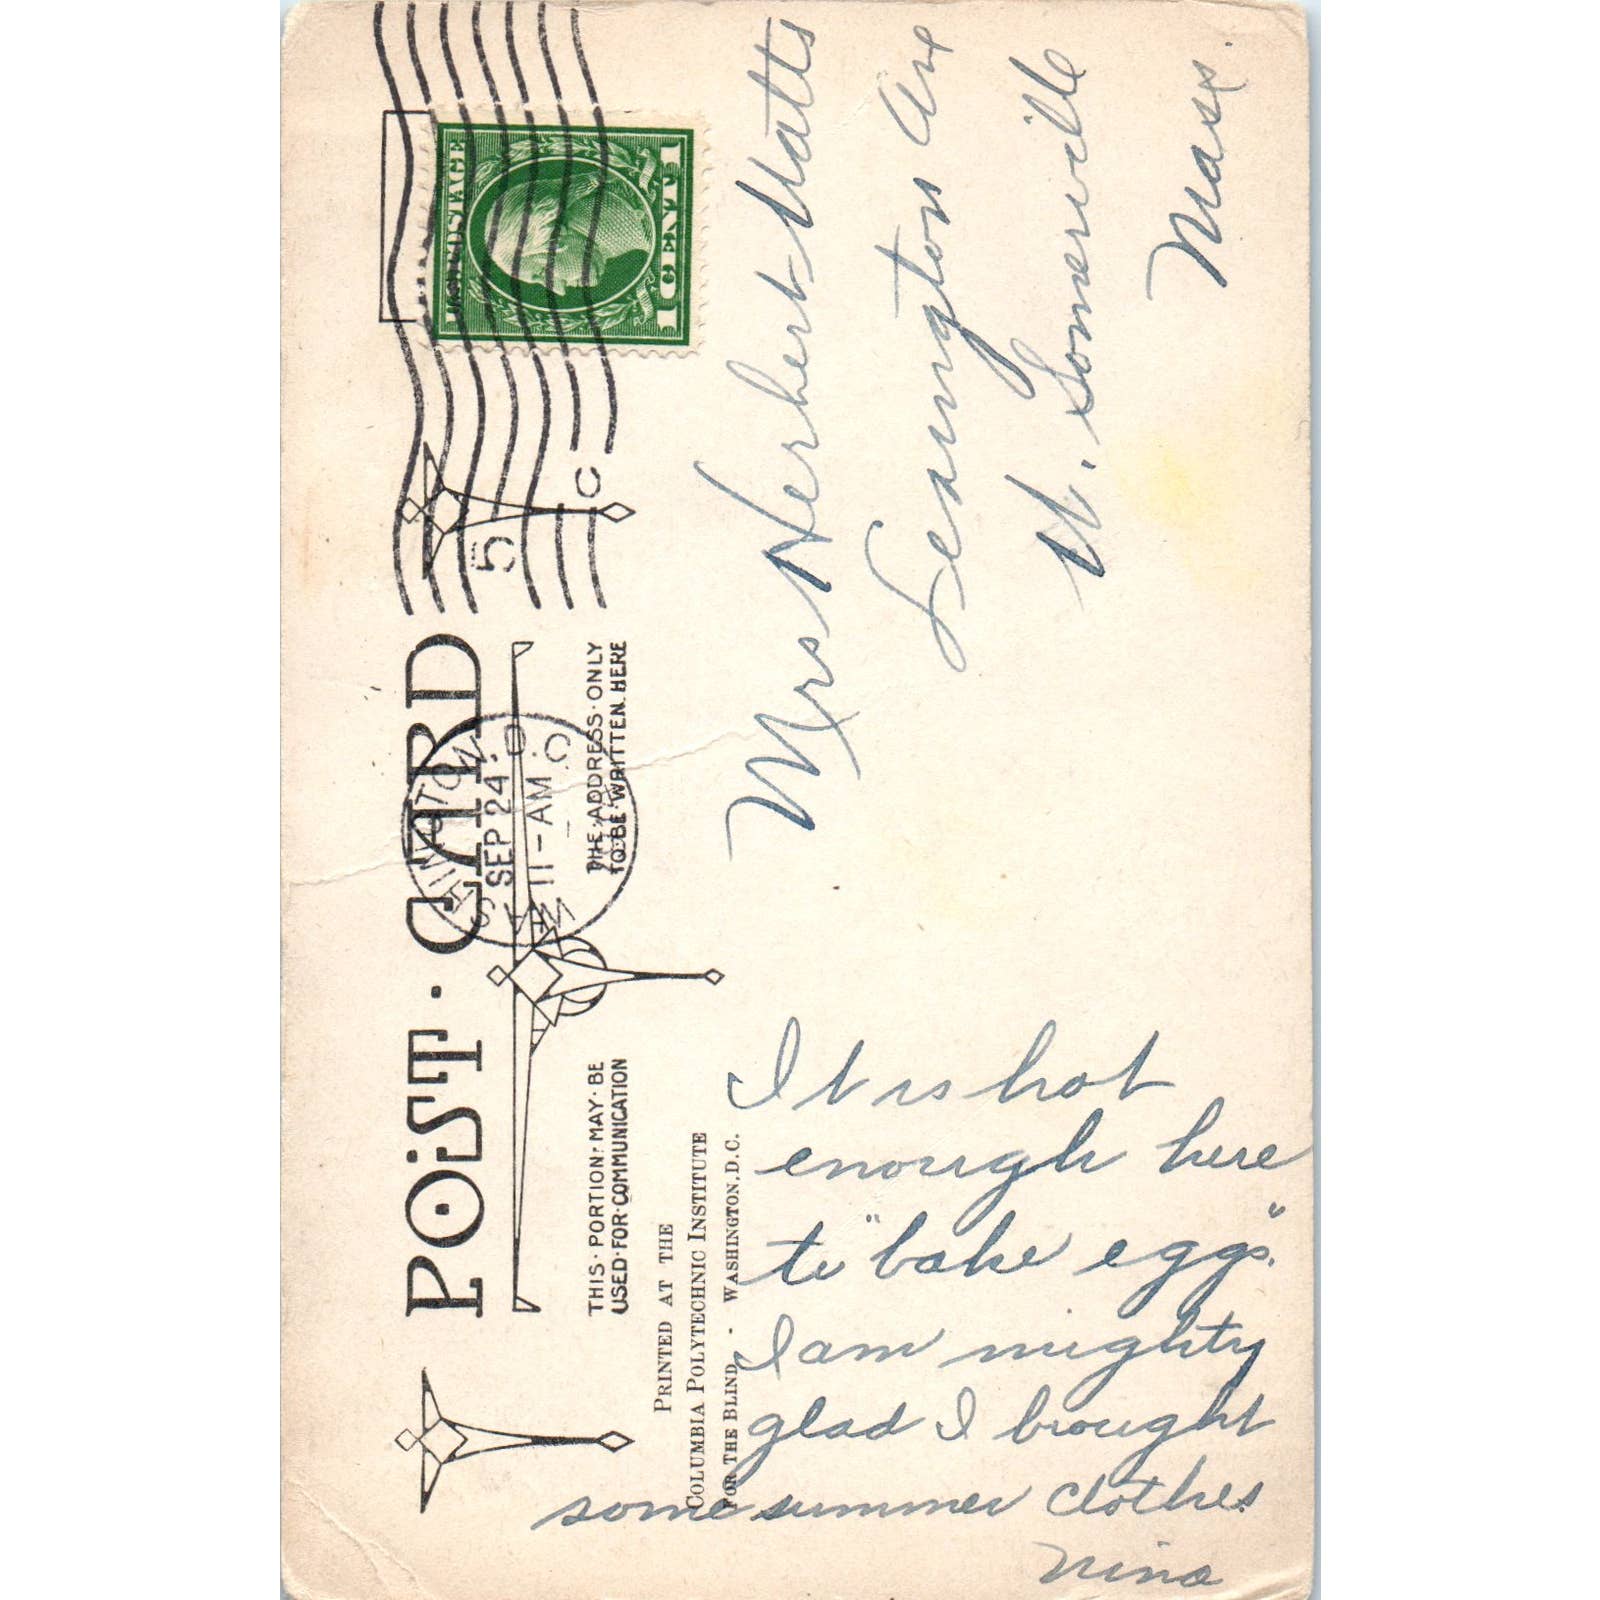 POST · CARD
WASHINGTON D.C.
SEP 24
11-AM
5 C
U.S. POSTAGE
1 CENT 1
THIS · PORTION · MAY · BE
USED · FOR · COMMUNICATION
THE · ADDRESS · ONLY
TO · BE · WRITTEN · HERE
PRINTED AT THE
COLUMBIA POLYTECHNIC INSTITUTE
FOR THE BLIND - WASHINGTON, D.C.
It is hot
enough here
to "bake eggs".
I am mighty
glad I brought
some summer clothes.
Nina
Mrs Herbert Watts
Lexington Ave
W. Somerville
Mass.